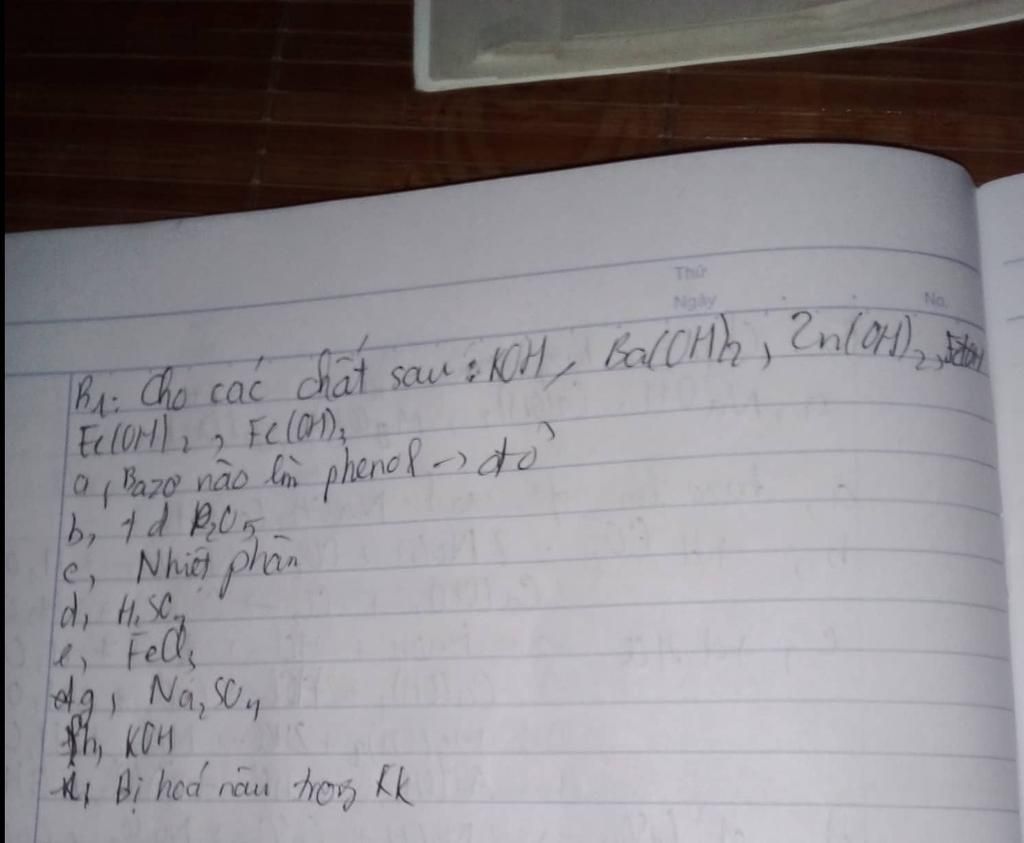 Thứ
Ngày No.
B1: Cho các chất sau: KOH, Ba(OH)2, Zn(OH)2,
Fe(OH)2, Fe(OH)3
a, Bazơ nào lm phenol -> đỏ
b, td P2O5
c, Nhiệt phân
d, H2SO4
e, FeCl3
g, Na2SO4
h, KOH
Bị hoá nâu trong kk